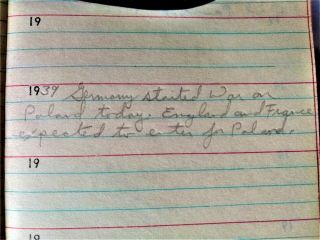 19
1939 Germany started War on
Poland today. England and France
expected to enter for Poland.
19
19